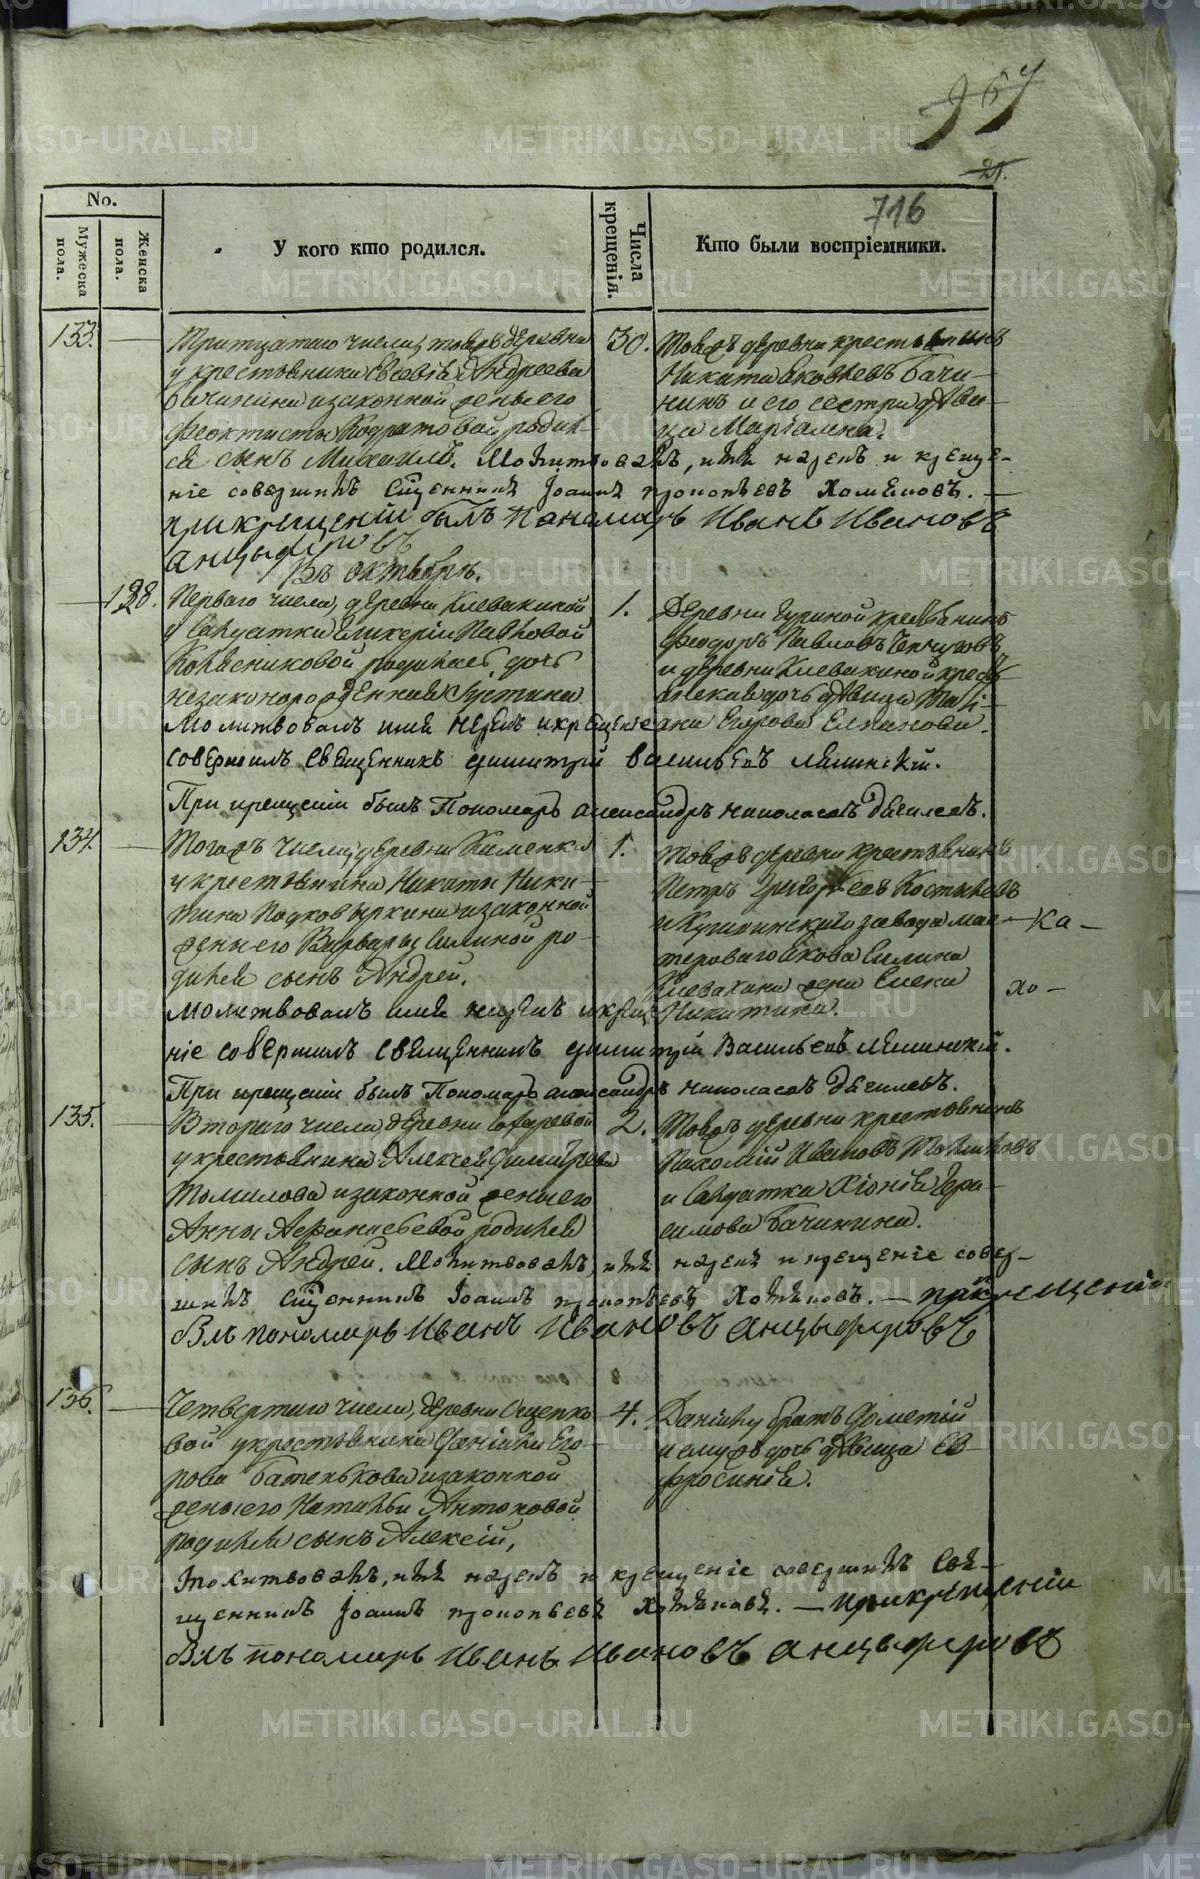 967
21.
716
No.
Мужеска пола.
Женска пола.
У кого кто родился.
Числа крещенія.
Кто были воспріемники.
133.
Тритцатаго числа, тояжъ деревни
у крестьянина Евсевія Андреева
Бачинина изаконной жены его
Феоктисты Кодратовой родил-
ся сынъ Михаилъ. Молитвовалъ, имя нарекъ и креще-
ніе совершилъ Сщенникъ Іоаннъ Прокопьевъ Хомяковъ. —
При крещеніи былъ Пономарь Иванъ Ивановъ
Анцыферовъ
30.
Тояжъ деревни крестьянинъ
Никита Яковлевъ Бачи-
нинъ и его сестра дѣви-
ца Маріамна.
Въ октябрѣ.
128.
Перваго числа, деревни Клевакиной
у Салдатки Гликеріи Павловой
Колесниковой родилась дочь
незаконорожденная Іустина
Молитвовалъ имя нарекъ и крещеніе
совершилъ Священникъ Димитрій Васильевъ Ляминскій.
При крещеніи былъ Пономарь Александръ Николаевъ Дягилевъ.
1.
Деревни Гуриной крестьянинъ
Феодоръ Павловъ
и деревни Клевакиной кресть-
янская дочь дѣвица Тати-
ана Егорова Елпанова.
134.
Тогожъ числа, деревни Каменки
у крестьянина Никиты Ники-
тина Подковыркина изаконной
жены его Варвары Силиной ро-
дился сынъ Андрей.
Молитвовалъ имя нарекъ и креще-
ніе совершилъ Священникъ Димитрій Васильевъ Ляминскій.
При крещеніи былъ Пономарь Александръ Николаевъ Дягилевъ.
1.
Тояжъ деревни крестьянинъ
Петръ Григорьевъ Костылевъ
и завода мас- ка-
тероваго Якова Силина
Клевакина жена Елена хо-
Никитина.
135.
Втораго числа, деревни
у крестьянина Алексея Димитрева
Томилова изаконной жены его
Анны Афанасьевой родился
сынъ Андрей. Молитвовалъ, имя нарекъ и крещеніе совер-
шилъ Сщенникъ Іоаннъ Прокопьевъ Хомяковъ. — При крещеніи
Былъ пономарь Иванъ Ивановъ Анцыферовъ
2.
Тояжъ деревни крестьянинъ
Пахомій Ивановъ Томиловъ
и Салдатка Хіонія Гера-
симова Бачинина.
136.
Четвертаго числа, деревни Ощепко-
вой у крестьянина Даніила Его-
рова Батенькова изаконной
жены его Натальи Антоновой
родился сынъ Алексій,
Молитвовалъ, имя нарекъ и крещеніе совершилъ Свя-
щенникъ Іоаннъ Прокопьевъ Хомяковъ. — При крещеніи
Былъ пономарь Иванъ Ивановъ Анцыферовъ
4.
Даніилу братъ Дометій
и емужъ дочь дѣвица Ев-
фросинія.
METRIKI.GASO-URAL.RU